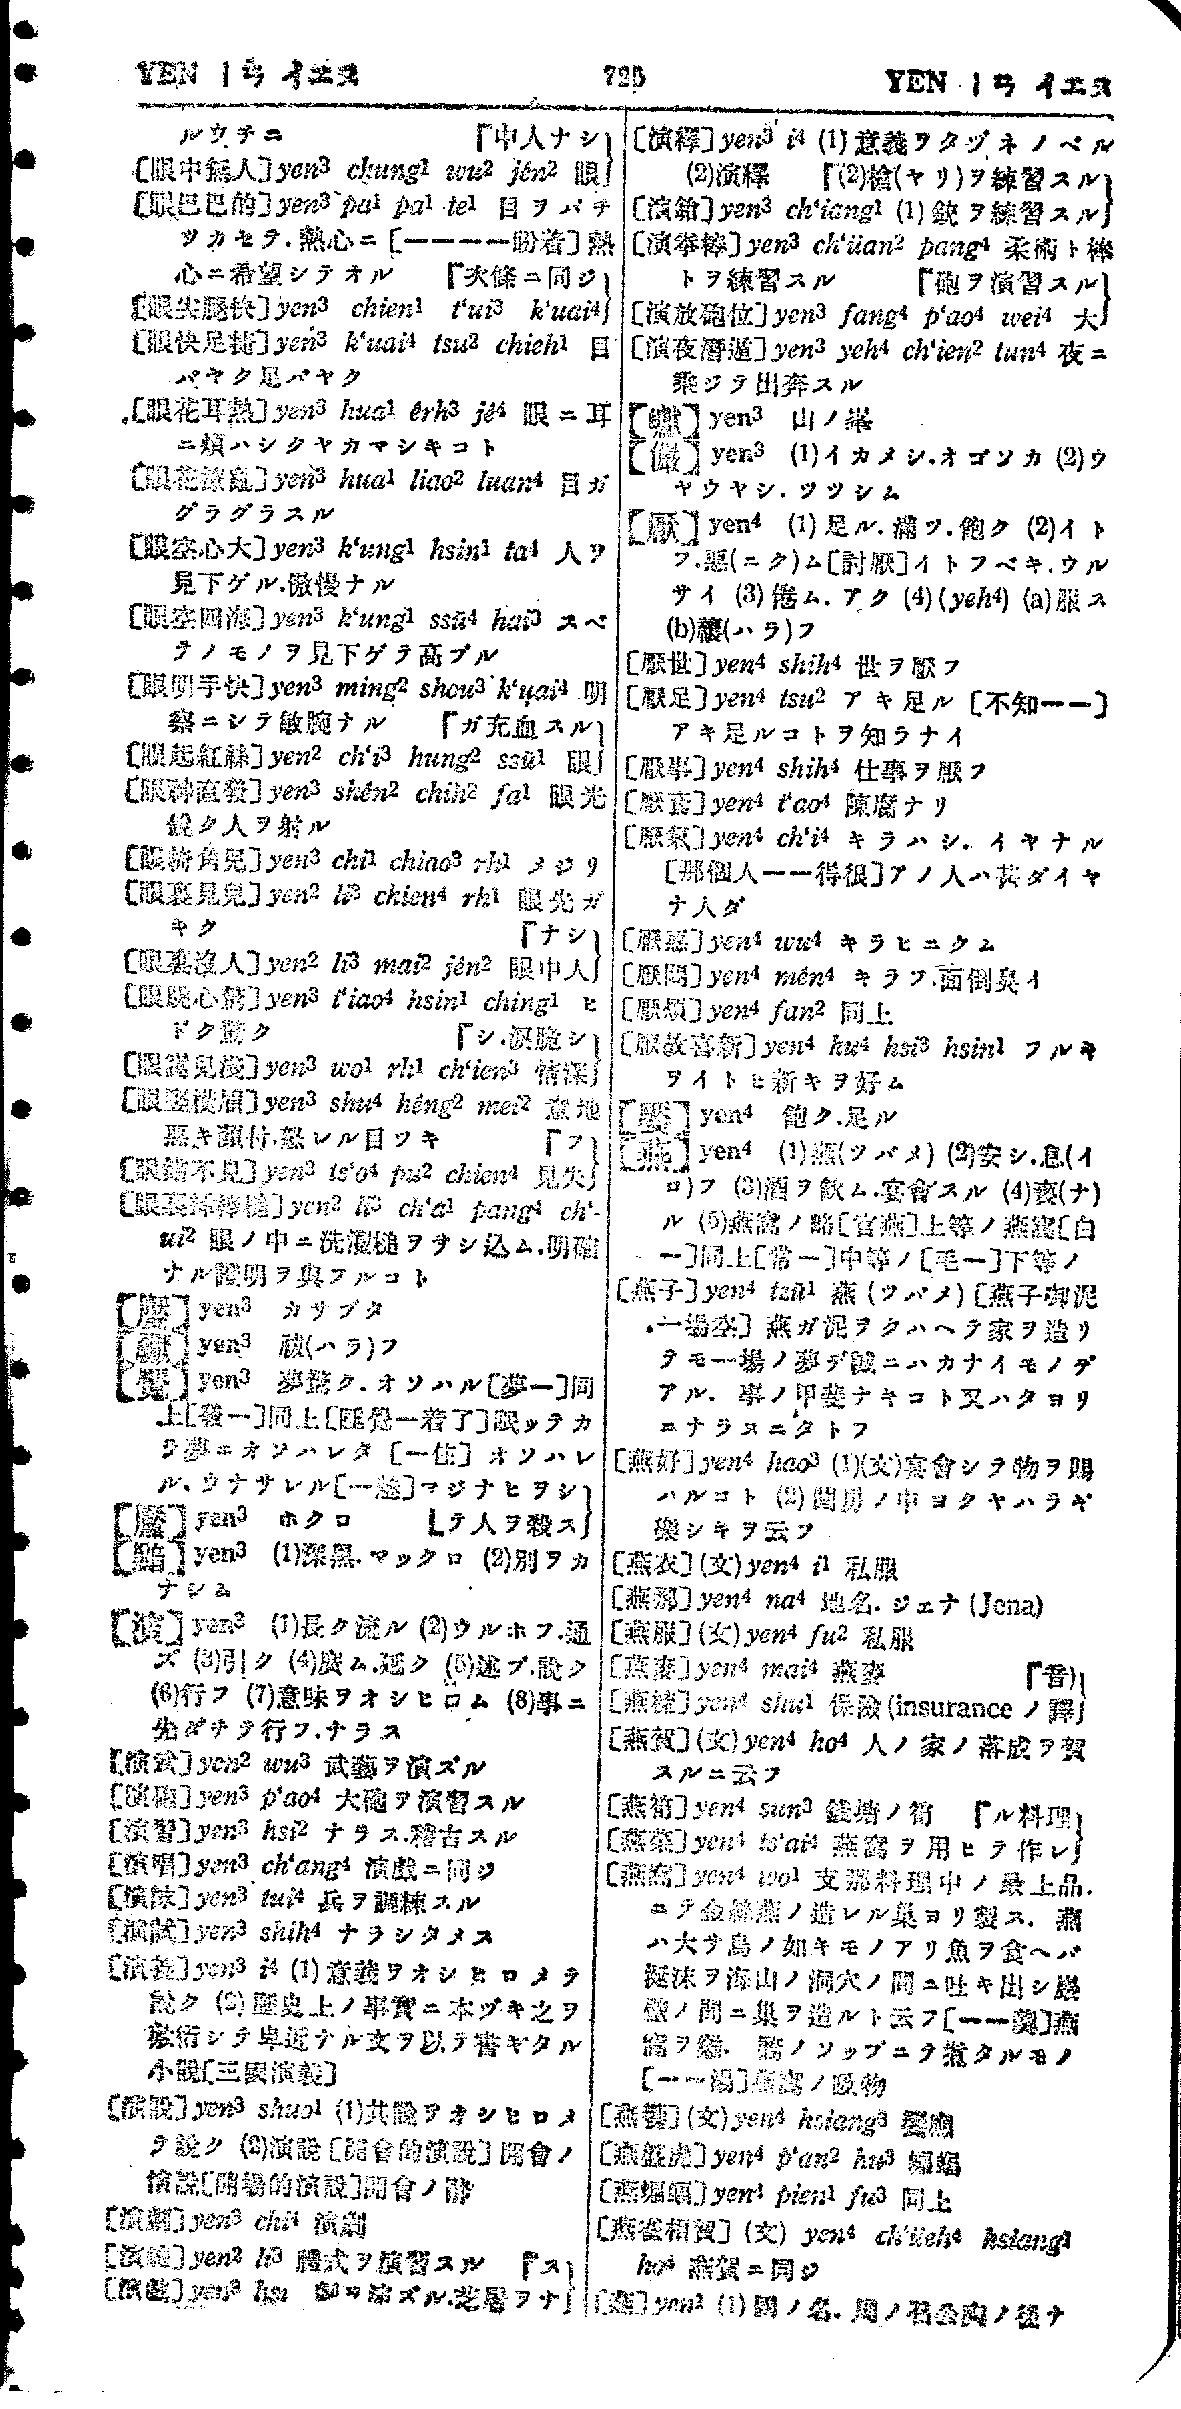 YEN ｜ㄢ イエヌ
725
YEN ｜ㄢ イエヌ
ルウチニ 『中人ナシ
[眼中無人] yen³ chung¹ wu² jên² 眼
[眼巴巴的] yen³ pa¹ pa¹ te¹ 目ヲパチ
ツカセテ.熱心ニ [ーーーー盼着] 熱
心ニ希望シテオル 『次條ニ同ジ
[眼尖腿快] yen³ chien¹ t'ui³ k'uai⁴
[眼快足捷] yen³ k'uai⁴ tsu² chieh¹ 目
バヤク足バヤク
[眼花耳熱] yen³ hua¹ êrh³ jê⁴ 眼ニ耳
ニ煩ハシクヤカマシキコト
[眼花撩亂] yen³ hua¹ liao² luan⁴ 目ガ
グラグラスル
[眼空心大] yen³ k'ung¹ hsin¹ ta⁴ 人ヲ
見下ゲル.傲慢ナル
[眼空四海] yen³ k'ung¹ ssŭ⁴ hai³ スベ
テノモノヲ見下ゲテ高ブル
[眼明手快] yen³ ming² shou³ k'uai⁴ 明
察ニシテ敏腕ナル 『ガ充血スル
[眼起紅絲] yen² ch'i³ hung² ssŭ¹ 眼
[眼神直發] yen³ shên² chih² fa¹ 眼光
鋭ク人ヲ射ル
[眼犄角兒] yen³ chi¹ chiao³ rh¹ メジリ
[眼裏見兒] yen² li³ chien⁴ rh¹ 眼先ガ
キク 『ナシ
[眼裏沒人] yen² li³ mai² jên² 眼中人
[眼跳心驚] yen³ t'iao⁴ hsin¹ ching¹ ヒ
ドク驚ク 『シ.涙脆シ
[眼窩兒淺] yen³ wo¹ rh¹ ch'ien³ 情深
[眼竪橫眉] yen³ shu⁴ hêng² mei² 意地
惡キ顏付.怒レル目ツキ 『フ
[眼錯不見] yen³ ts'o⁴ pu² chien⁴ 見失
yen² li³ ch'a¹ pang⁴ ch'-
ui² 眼ノ中ニ洗濯槌ヲサシ込ム.明確
ナル證明ヲ與フルコト
yen³ カサブタ
yen³ 祓(ハラ)フ
[魘] yen³ 夢驚ク.オソハル[夢一]同
上[發一]同上[睡覺一着了]眠ッテカ
ラ夢ニオソハレタ [一住] オソハレ
ル.ウナサレル[一魅]マジナヒヲシ
yen³ ホクロ 『テ人ヲ殺ス
[黯] yen³ (1)深黑.マックロ (2)別ヲカ
ナシム
[演] yen³ (1)長ク流ル (2)ウルホフ.通
ズ (3)引ク (4)廣ム.延ク (5)述ブ.說ク
(6)行フ (7)意味ヲオシヒロム (8)事ニ
先ダチテ行フ.ナラス
[演武] yen² wu³ 武藝ヲ演ズル
[演砲] yen³ p'ao⁴ 大砲ヲ演習スル
[演習] yen³ hsi² ナラス.稽古スル
[演唱] yen³ ch'ang⁴ 演戲ニ同ジ
[演隊] yen³ tui⁴ 兵ヲ調練スル
[演試] yen³ shih⁴ ナラシタメス
[演義] yen³ i⁴ (1)意義ヲオシヒロメテ
說ク (2)歷史上ノ事實ニ本ヅキ之ヲ
敷衍シテ卑近ナル文ヲ以テ書キタル
小說[三國演義]
[演說] yen³ shuo¹ (1)共說ヲオシヒロメ
テ說ク (2)演說 [開會的演說]開會ノ
演說[開場的演說]開會ノ辭
[演劇] yen³ chi⁴ 演劇
[演禮] yen² li³ 禮式ヲ演習スル 『ス
[演戲] yen³ hsi 劇ヲ演ズル.芝居ヲナ
[演釋] yen³ i⁴ (1)意義ヲタヅネノベル
(2)演釋 『(2)槍(ヤリ)ヲ練習スル
[演鎗] yen³ ch'iang¹ (1)銃ヲ練習スル
[演拳棒] yen³ ch'üan² pang⁴ 柔術ト棒
トヲ練習スル 『砲ヲ演習スル
[演放砲位] yen³ fang⁴ p'ao⁴ wei⁴ 大
[演夜潛遁] yen³ yeh⁴ ch'ien² tun⁴ 夜ニ
乘ジテ出奔スル
[巘] yen³ 山ノ峯
[儼] yen³ (1)イカメシ.オゴソカ (2)ウ
ヤウヤシ.ツツシム
[厭] yen⁴ (1)足ル.滿ツ.飽ク (2)イト
フ.惡(ニク)ム[討厭]イトフベキ.ウル
サイ (3)倦ム.アク (4)(yeh⁴) (a)服ス
(b)禳(ハラ)フ
[厭世] yen⁴ shih⁴ 世ヲ厭フ
[厭足] yen⁴ tsu² アキ足ル [不知ーー]
アキ足ルコトヲ知ラナイ
[厭事] yen⁴ shih⁴ 仕事ヲ厭フ
[厭套] yen⁴ t'ao⁴ 陳腐ナリ
[厭氣] yen⁴ ch'i⁴ キラハシ.イヤナル
[那個人ーー得很]アノ人ハ甚ダイヤ
ナ人ダ
[厭惡] yen⁴ wu⁴ キラヒニクム
[厭悶] yen⁴ mên⁴ キラフ.面倒臭イ
[厭煩] yen⁴ fan² 同上
[厭故喜新] yen⁴ ku⁴ hsi³ hsin¹ フルキ
ヲイトヒ新キヲ好ム
yen⁴ 飽ク.足ル
[燕] yen⁴ (1)燕(ツバメ) (2)安シ.息(イ
コ)フ (3)酒ヲ飮ム.宴會スル (4)喪(ナ)
ル (5)燕窩ノ略[官燕]上等ノ燕窩[白
ー]同上[常ー]中等ノ[毛ー]下等ノ
[燕子] yen⁴ tzŭ¹ 燕 (ツバメ) [燕子啣泥
一場空] 燕ガ泥ヲクハヘテ家ヲ造リ
テモ一場ノ夢デ誠ニハカナイモノデ
アル. 事ノ甲斐ナキコト又ハタヨリ
ニナラヌニタトフ
[燕好] yen⁴ hao³ (1)(文)宴會シテ物ヲ賜
ハルコト (2)閨房ノ中ヨクヤハラギ
樂シキヲ云フ
[燕衣] (文) yen⁴ i¹ 私服
[燕那] yen⁴ na⁴ 地名. ジェナ (Jena)
[燕服] (文) yen⁴ fu² 私服
[燕麥] yen⁴ mai⁴ 燕麥 『音)
[燕梳] yen⁴ shu¹ 保險 (insurance ノ譯
[燕賀] (文) yen⁴ ho⁴ 人ノ家ノ落成ヲ賀
スルニ云フ
[燕筍] yen⁴ sun³ 錢塘ノ筍 『ル料理
[燕菜] yen⁴ ts'ai⁴ 燕窩ヲ用ヒテ作レ
[燕窩] yen⁴ wo¹ 支那料理中ノ最上品.
ニテ金絲燕ノ造レル巢ヨリ製ス. 燕
ハ大サ鳥ノ如キモノアリ魚ヲ食ヘバ
涎沫ヲ海山ノ洞穴ノ間ニ吐キ出シ巖
壁ノ間ニ巢ヲ造ルト云フ[ーー羹]燕
窩ヲ鷄. 鴨ノソップニテ煮タルモノ
[ーー湯]燕窩ノ吸物
[燕饗] (文) yen⁴ hsiang³ 饗應
yen⁴ p'an² hu³ 蝙蝠
[燕蝙蝠] yen⁴ pien¹ fu³ 同上
[燕雀相賀] (文) yen⁴ ch'üeh⁴ hsiang¹
ho⁴ 燕賀ニ同ジ
[燕] yen¹ (1)國ノ名. 周ノ召公奭ノ後ナ